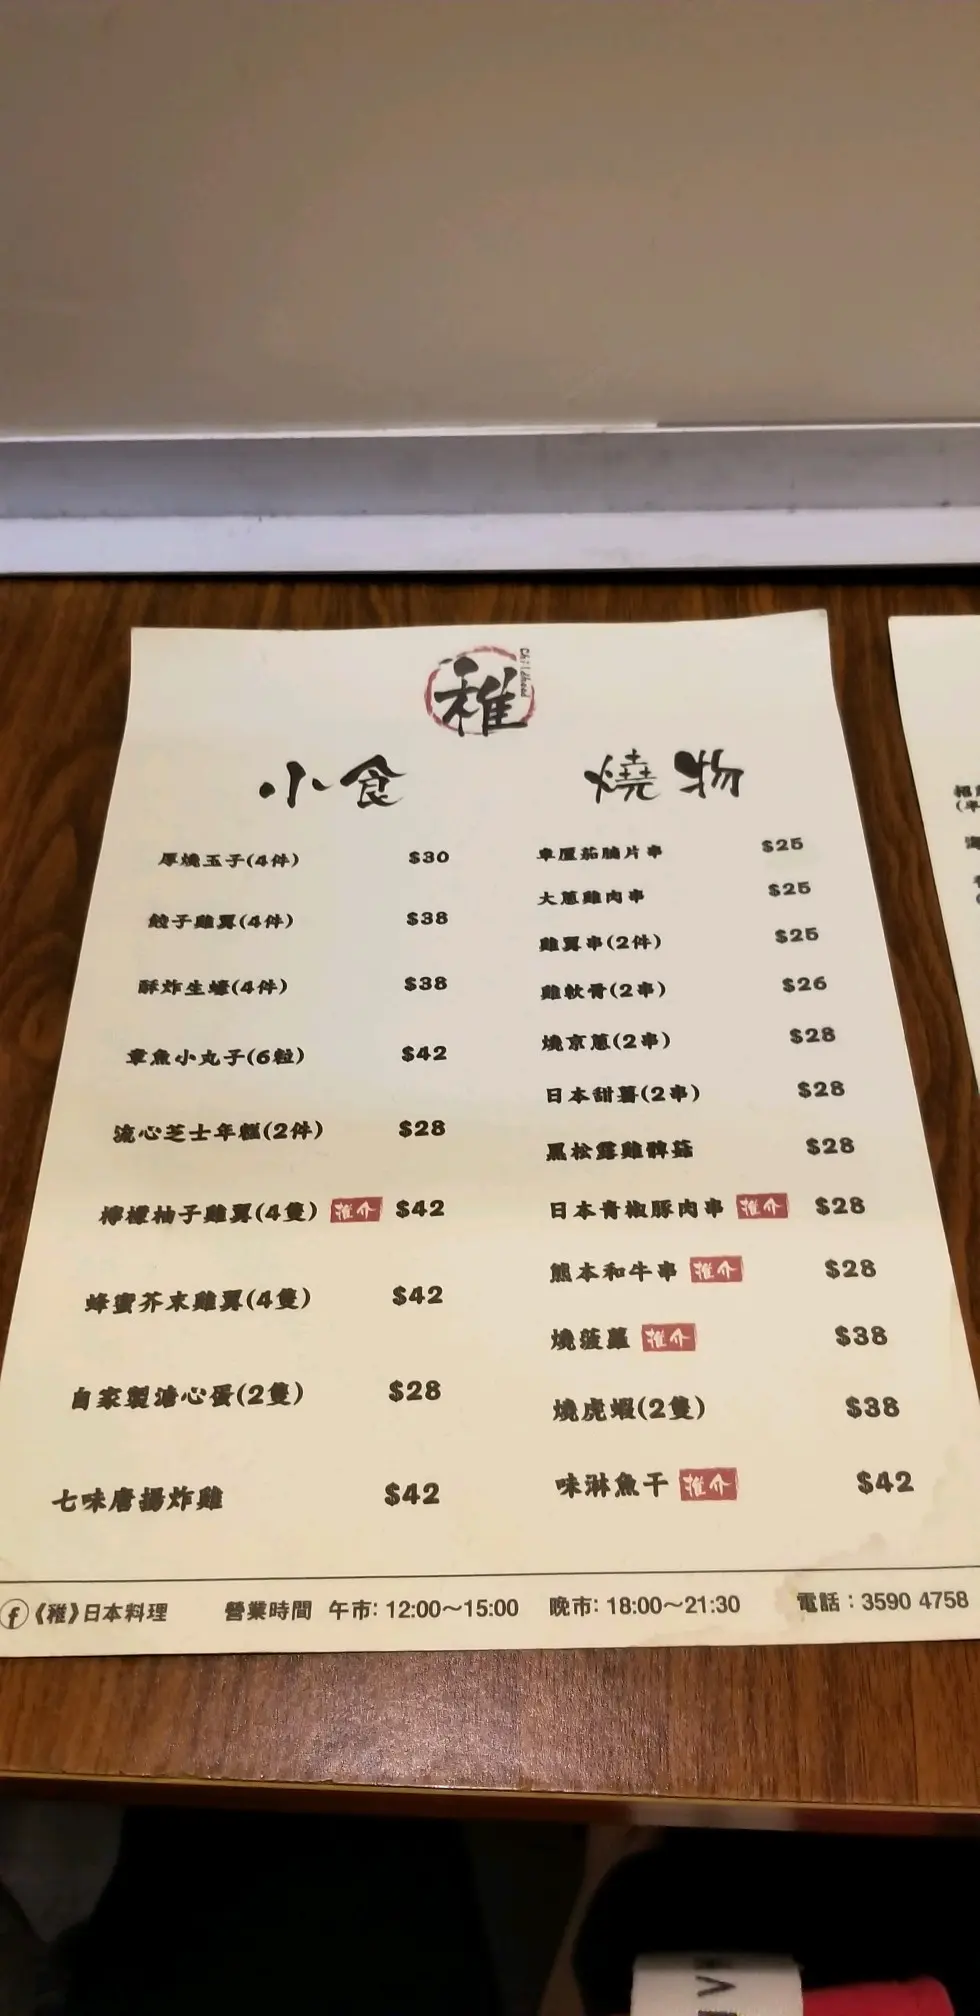 稚
Childhood
小食
厚燒玉子(4件) $30
餃子雞翼(4件) $38
酥炸生蠔(4件) $38
章魚小丸子(6粒) $42
流心芝士年糕(2件) $28
檸檬柚子雞翼(4隻) 推介 $42
蜂蜜芥末雞翼(4隻) $42
自家製溏心蛋(2隻) $28
七味唐揚炸雞 $42
燒物
車厘茄腩片串 $25
大蔥雞肉串 $25
雞翼串(2件) $25
雞軟骨(2串) $26
燒京蔥(2串) $28
日本甜薯(2串) $28
黑松露雞髀菇 $28
日本青椒豚肉串 推介 $28
熊本和牛串 推介 $28
燒菠蘿 推介 $38
燒虎蝦(2隻) $38
味淋魚干 推介 $42
f 《稚》日本料理 營業時間 午市: 12:00～15:00 晚市: 18:00～21:30 電話：3590 4758